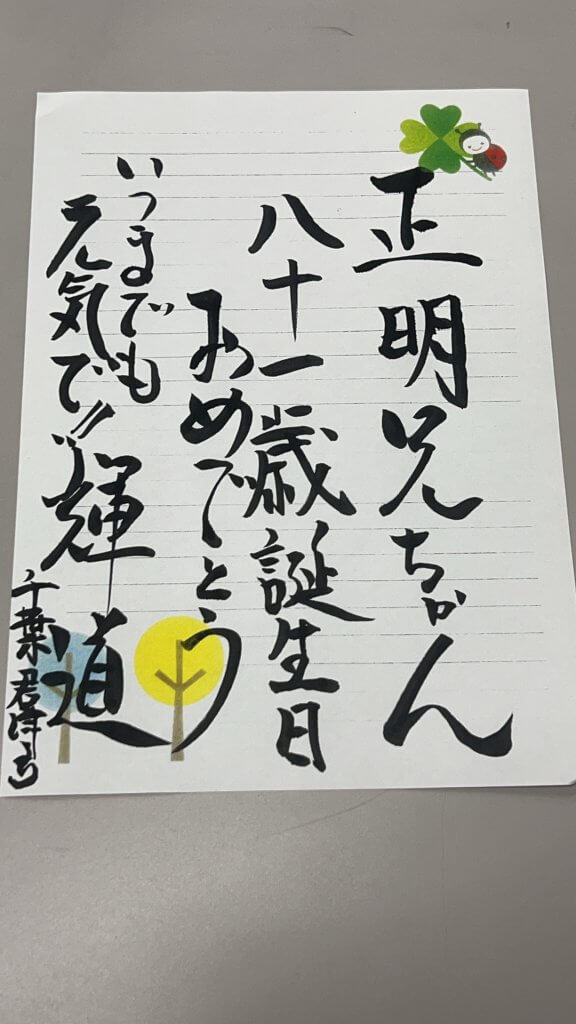 正明兄ちゃん
八十一歳誕生日
おめでとう
いつまでも
元気で!!
輝道
千葉君津より